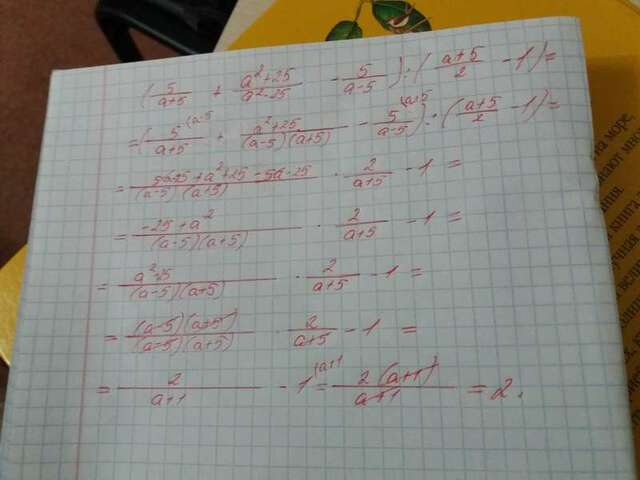 (5/(a+5) + (a²+25)/(a²-25) - 5/(a-5)) : ((a+5)/2 - 1) =
= (5^(a-5)/(a+5) + (a²+25)/((a-5)(a+5)) - 5^(a+5)/(a-5)) : ((a+5)/2 - 1) =
= (5a-25+a²+25-5a-25)/((a-5)(a+5)) · 2/(a+5) - 1 =
= (-25+a²)/((a-5)(a+5)) · 2/(a+5) - 1 =
= (a²-25)/((a-5)(a+5)) · 2/(a+5) - 1 =
= ((a-5)(a+5))/((a-5)(a+5)) · 2/(a+5) - 1 =
= 2/(a+1) - 1^(a+1) = 2(a+1)/(a+1) = 2.
на море,